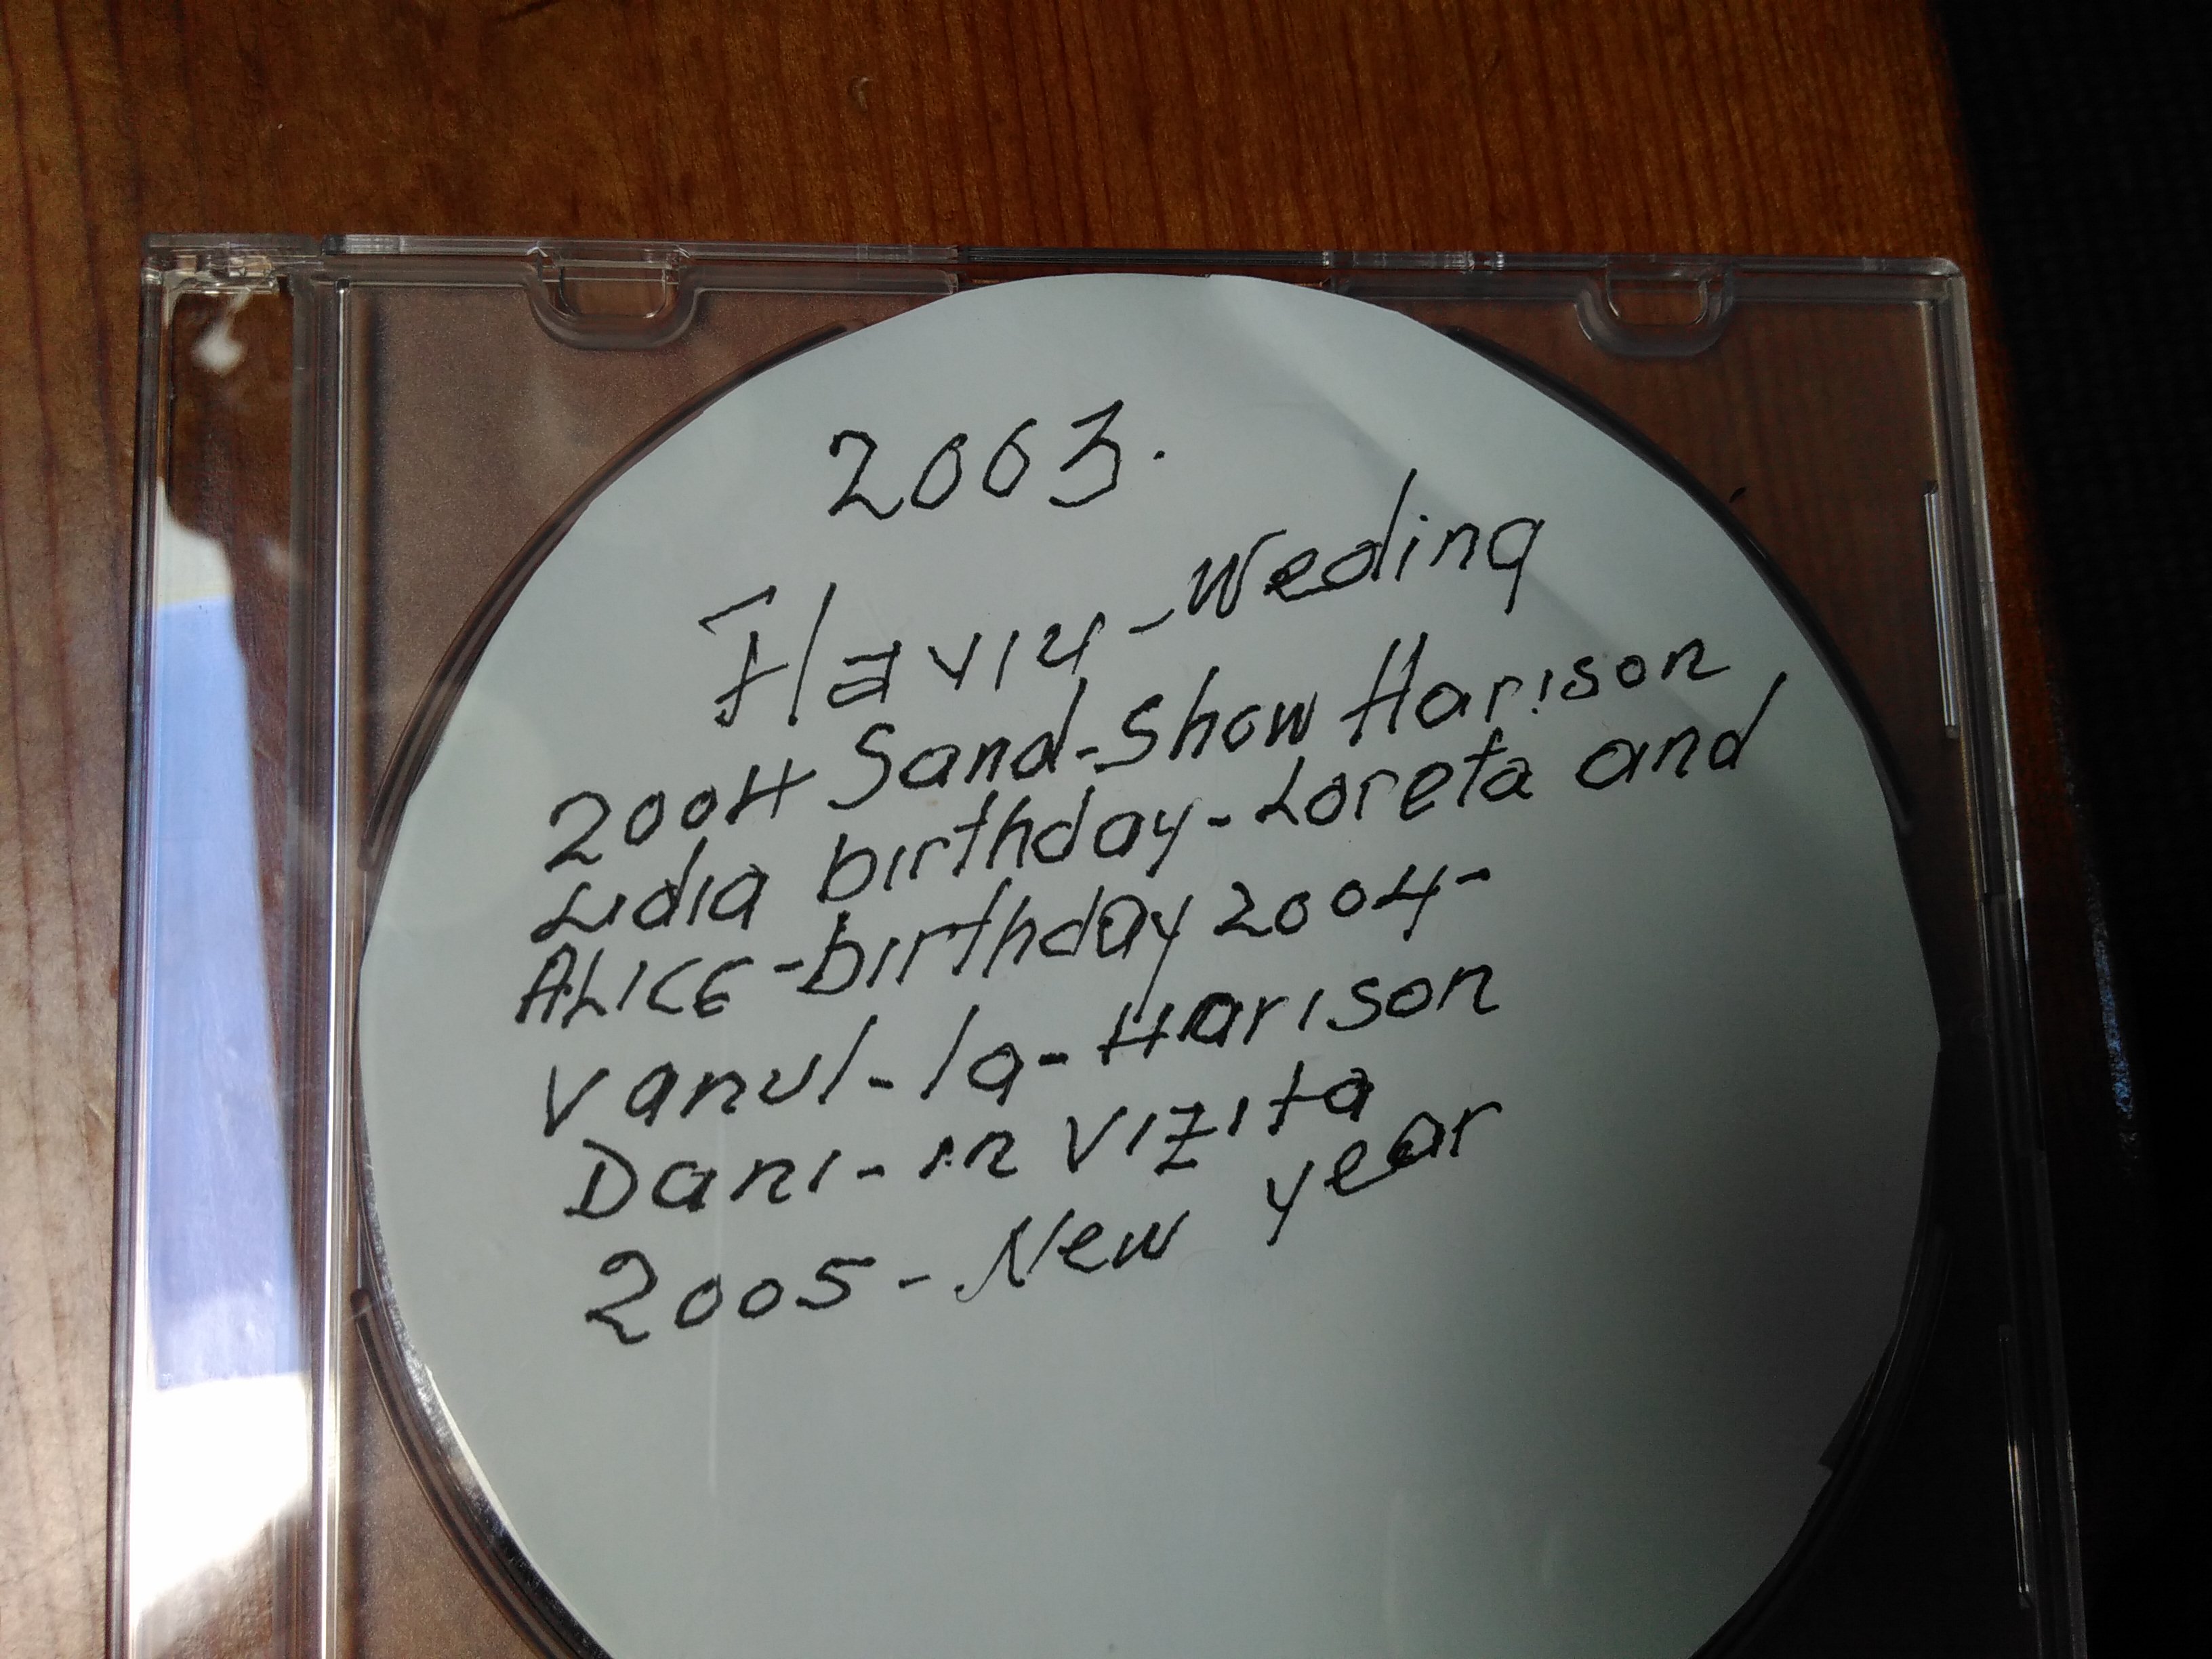 2003.
Flaviu-Weding
2004 Sand-Show Harison
Lidia birthday-Loreta and
ALICE-birthday 2004-
Vanul-la-Harison
Dani-in vizita
2005-New year